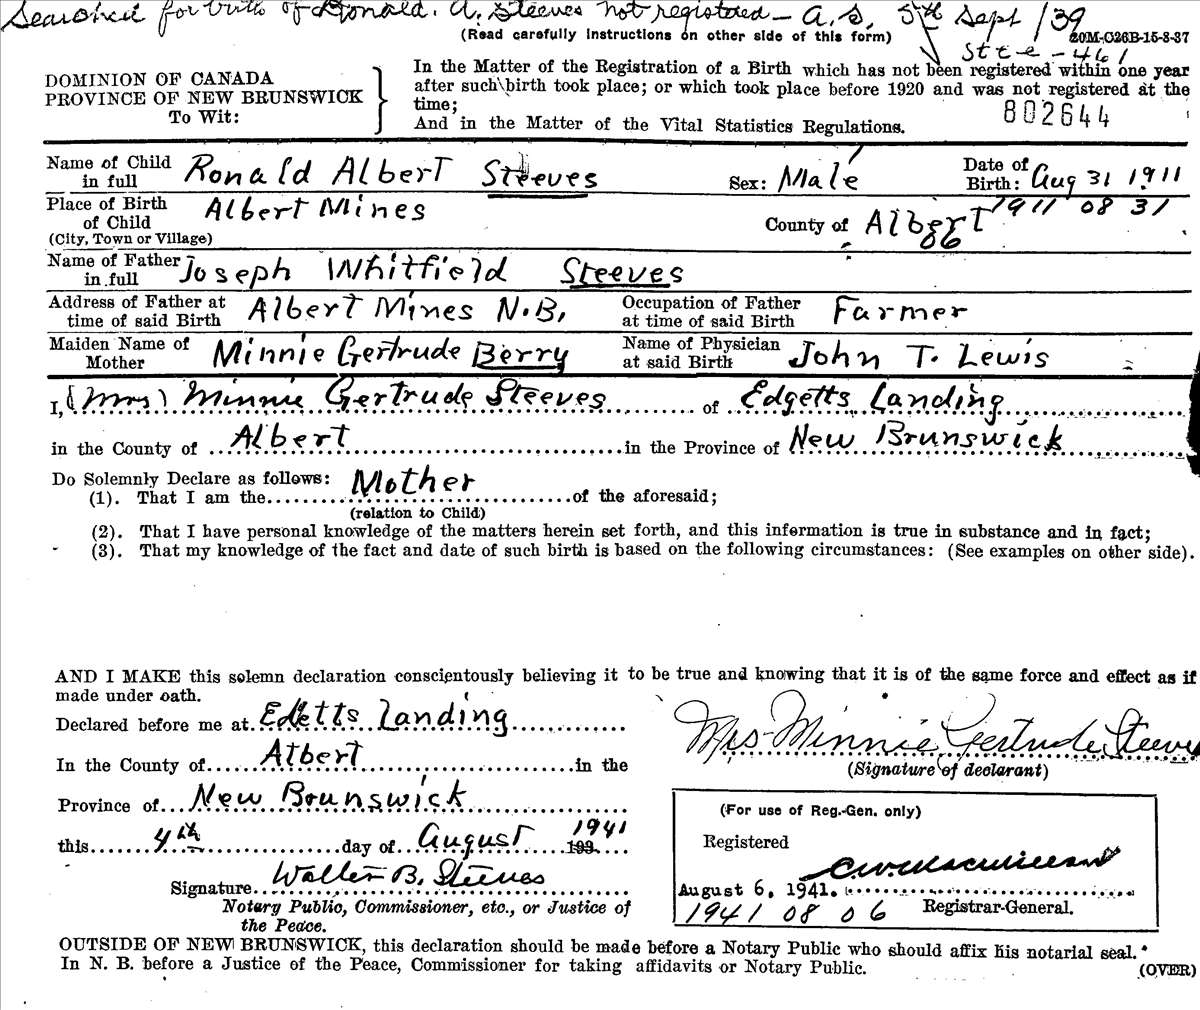 Searched for birth of Ronald. A. Steeves not registered - A.S. 5th Sept /39
(Read carefully instructions on other side of this form) 20M-C26B-15-8-37
802644
DOMINION OF CANADA
PROVINCE OF NEW BRUNSWICK
To Wit:
In the Matter of the Registration of a Birth which has not been registered within one year
after such birth took place; or which took place before 1920 and was not registered at the
time;
And in the Matter of the Vital Statistics Regulations.
Name of Child in full Ronald Albert Steeves Sex: Male Date of Birth: Aug 31 1911
1911 08 31
Place of Birth of Child (City, Town or Village) Albert Mines County of Albert
06
Name of Father in full Joseph Whitfield Steeves
Address of Father at time of said Birth Albert Mines N.B. Occupation of Father at time of said Birth Farmer
Maiden Name of Mother Minnie Gertrude Berry Name of Physician at said Birth John T. Lewis
I, (Mrs) Minnie Gertrude Steeves of Edgetts Landing
in the County of Albert in the Province of New Brunswick
Do Solemnly Declare as follows:
(1). That I am the Mother of the aforesaid;
(relation to Child)
(2). That I have personal knowledge of the matters herein set forth, and this information is true in substance and in fact;
(3). That my knowledge of the fact and date of such birth is based on the following circumstances: (See examples on other side).
AND I MAKE this solemn declaration conscientously believing it to be true and knowing that it is of the same force and effect as if
made under oath.
Declared before me at Edetts Landing
In the County of Albert in the
Province of New Brunswick
this 4th day of August 193 1941
Signature Walter B. Steeves
Notary Public, Commissioner, etc., or Justice of
the Peace.
Mrs. Minnie Gertrude Steeves
(Signature of declarant)
(For use of Reg.-Gen. only)
Registered
August 6, 1941.
1941 08 06 Registrar-General.
OUTSIDE OF NEW BRUNSWICK, this declaration should be made before a Notary Public who should affix his notarial seal.
In N. B. before a Justice of the Peace, Commissioner for taking affidavits or Notary Public.
(OVER)